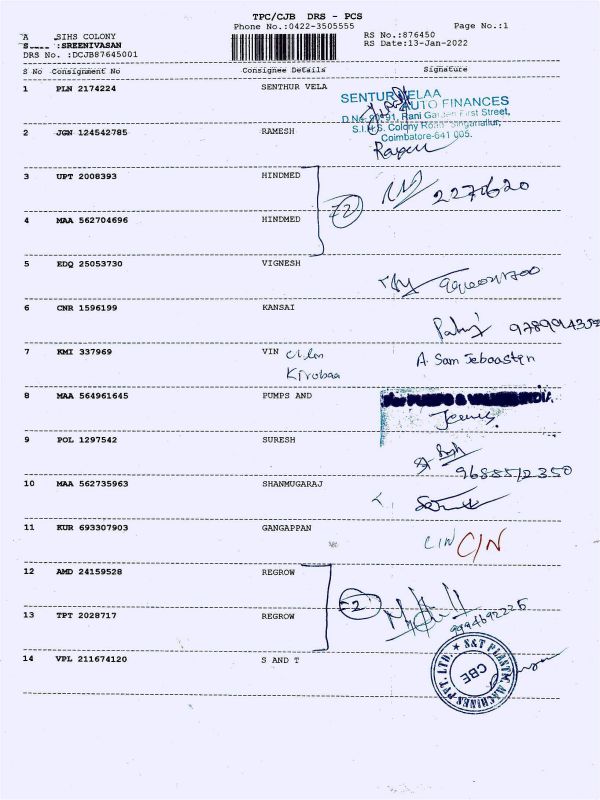 TPC/CJB DRS - PCS
Phone No.:0422-3505555 Page No.:1
A SIHS COLONY RS No.:876450
:SREENIVASAN RS Date:13-Jan-2022
DRS No. :DCJB87645001
S No Consignment No Consignee Details Signature
1 PLN 2174224 SENTHUR VELA
SENTUR VELAA
AUTO FINANCES
Rani Garden First Street,
S.I.H.S. Colony Road Singanallur,
Coimbatore-641 005.
2 JGN 124542785 RAMESH
3 UPT 2008393 HINDMED
2270620
4 MAA 562704696 HINDMED
5 EDQ 25053730 VIGNESH
6 CNR 1596199 KANSAI
7 KMI 337969 VIN A. Sam Jebaastin
Kirubaa
8 MAA 564961645 PUMPS AND
9 POL 1297542 SURESH
10 MAA 562735963 SHANMUGARAJ
11 KUR 693307903 GANGAPPAN CIN C/N
12 AMD 24159528 REGROW
13 TPT 2028717 REGROW
9994692225
14 VPL 211674120 S AND T
S&T PLASTIC MACHINES PVT. LTD.
CBE